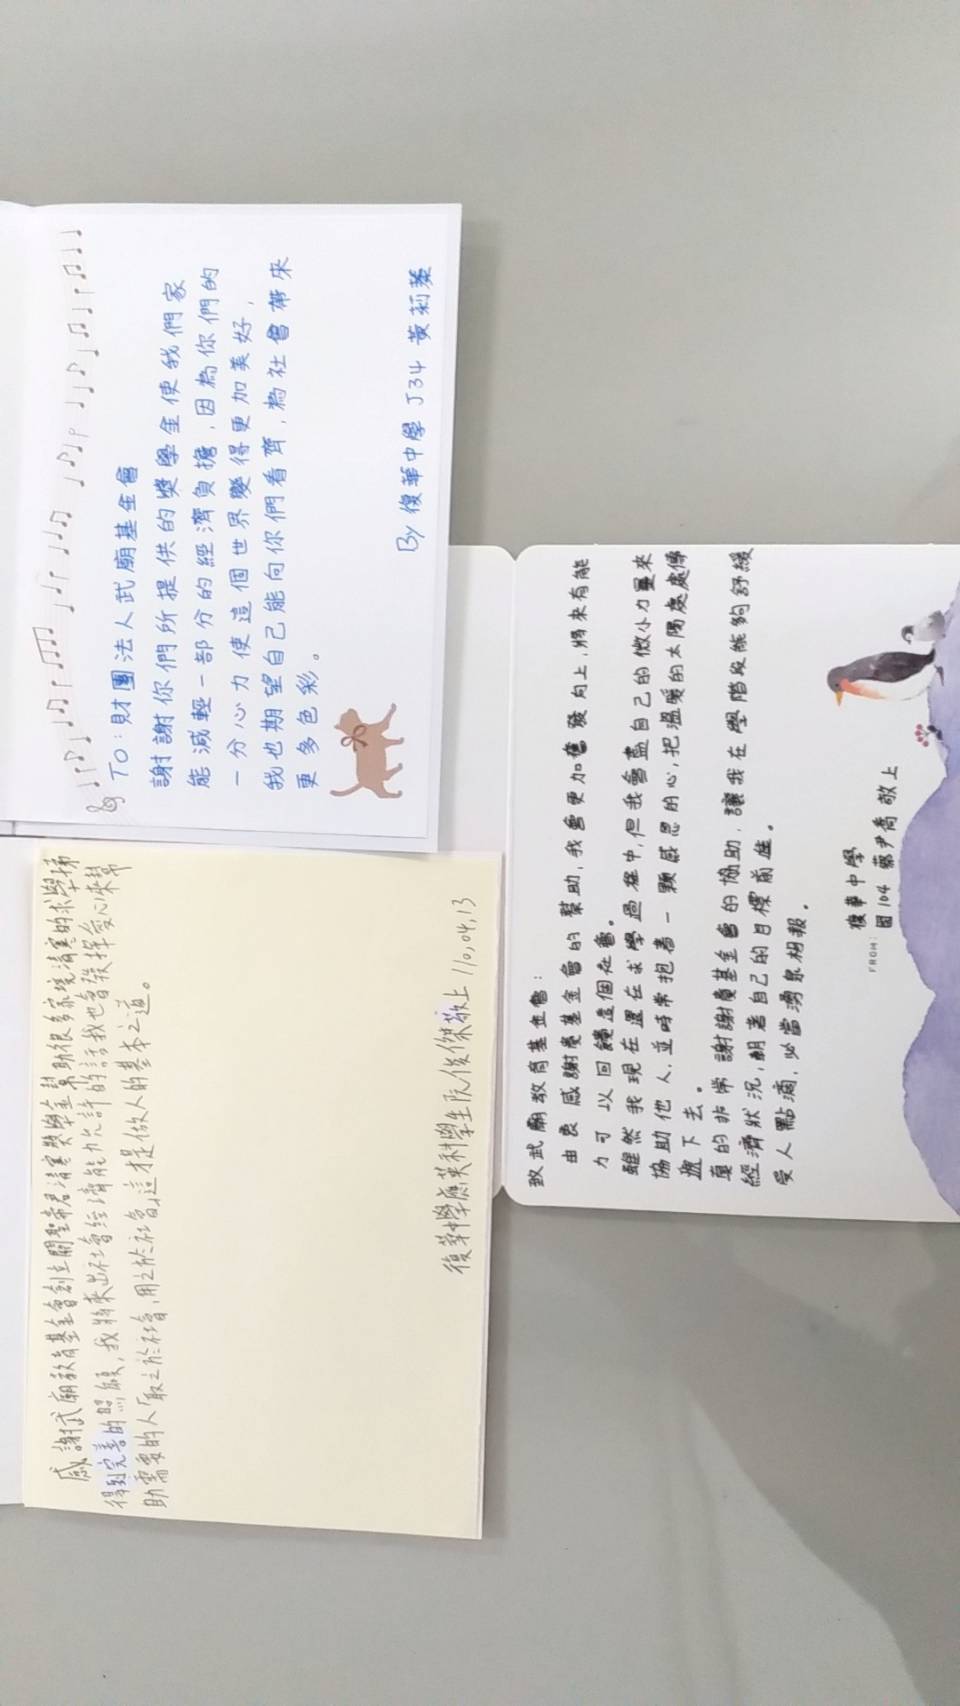 TO：財團法人武廟基金會
謝謝你們所提供的獎學金使我們家
能減輕一部分的經濟負擔，因為你們的
一分心力使這個世界變得更加美好，
我也期望自己能向你們看齊，為社會帶來
更多色彩。
By 復華中學 J34 黃莉蓁
感謝武廟教育基金會創立關聖帝君清寒獎學金幫助很多家境清寒的求學我
得到完善的照顧，我將來出社會經濟能力允許的話我也會發揮愛心來幫
助需要的人「取之於社會，用之於社會」這才是做人的基本之道。
復華中學應英科學生阮俊傑敬上 110,04,13
致武廟教育基金會：
由衷感謝貴基金會的幫助，我會更加奮發向上，將來有能
力可以回饋這個社會。
雖然我現在還在求學過程中，但我會盡自己的微小力量來
協助他人，並時常抱著一顆感恩的心，把溫暖的太陽處處傳
遞下去。
真的非常謝謝貴基金會的協助，讓我在學階段能夠舒緩
經濟狀況，朝著自己的目標前進。
受人點滴，必當湧泉相報。
復華中學
FROM： 國104 蔡尹喬 敬上